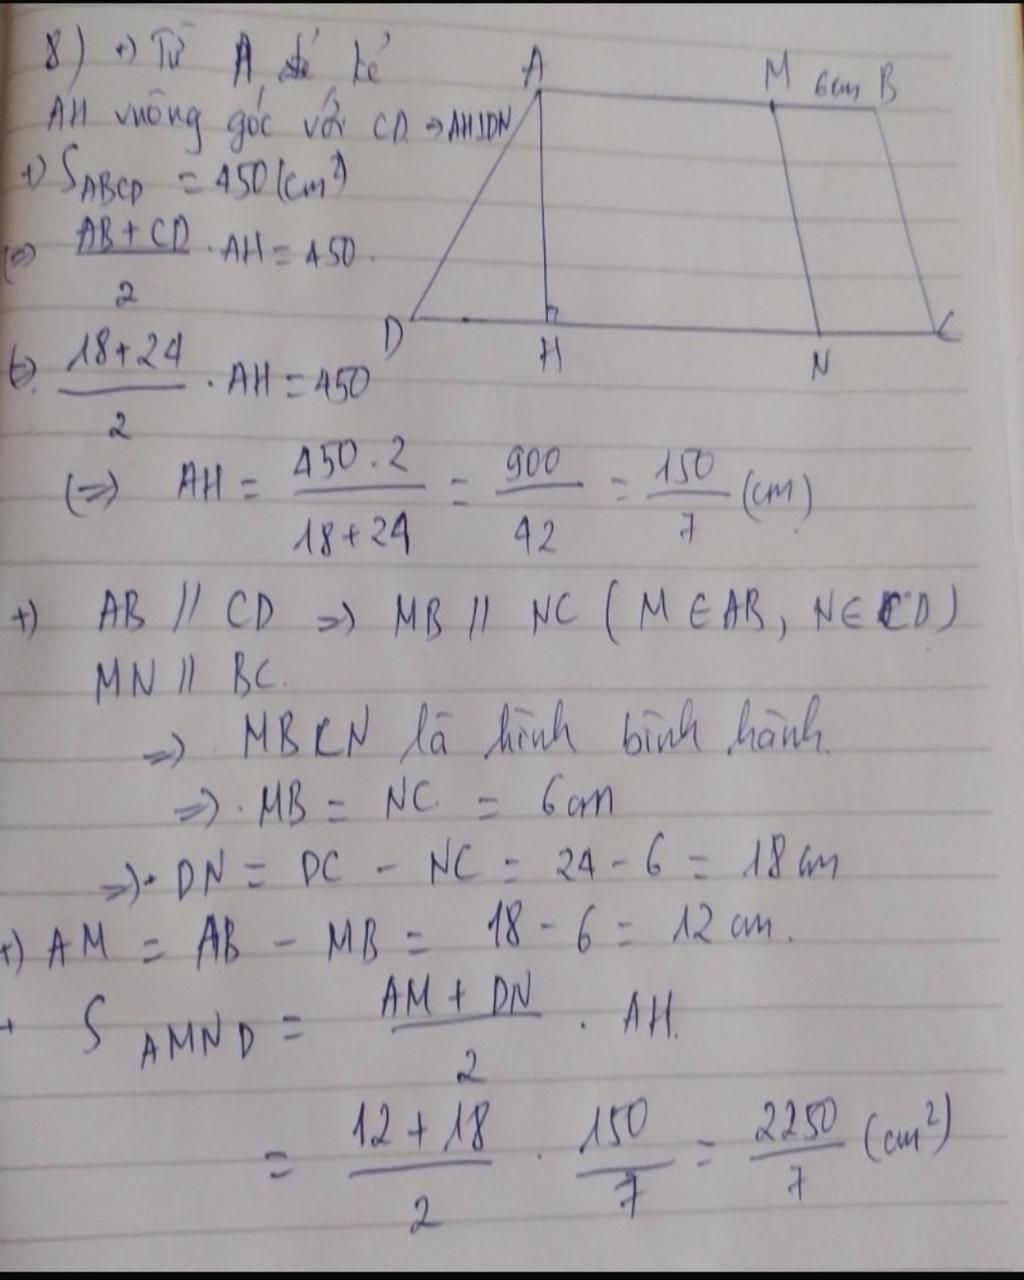 8) +) Từ A kẻ
AH vuông góc với CD → AH⊥DN
+) S_ABCD = 450 (cm²)
(=) (AB + CD)/2 . AH = 450.
(=) (18+24)/2 . AH = 450
(=>) AH = (450.2)/(18+24) = 900/42 = 150/7 (cm)
+) AB // CD => MB // NC ( M ∈ AB, N ∈ CD)
MN // BC.
=> MBCN là hình bình hành.
=> . MB = NC = 6cm
=> . DN = DC - NC = 24 - 6 = 18 cm
+) AM = AB - MB = 18 - 6 = 12 cm.
+ S_AMND = (AM + DN)/2 . AH.
= (12 + 18)/2 . 150/7 = 2250/7 (cm²)
A M 6cm B
D H N C